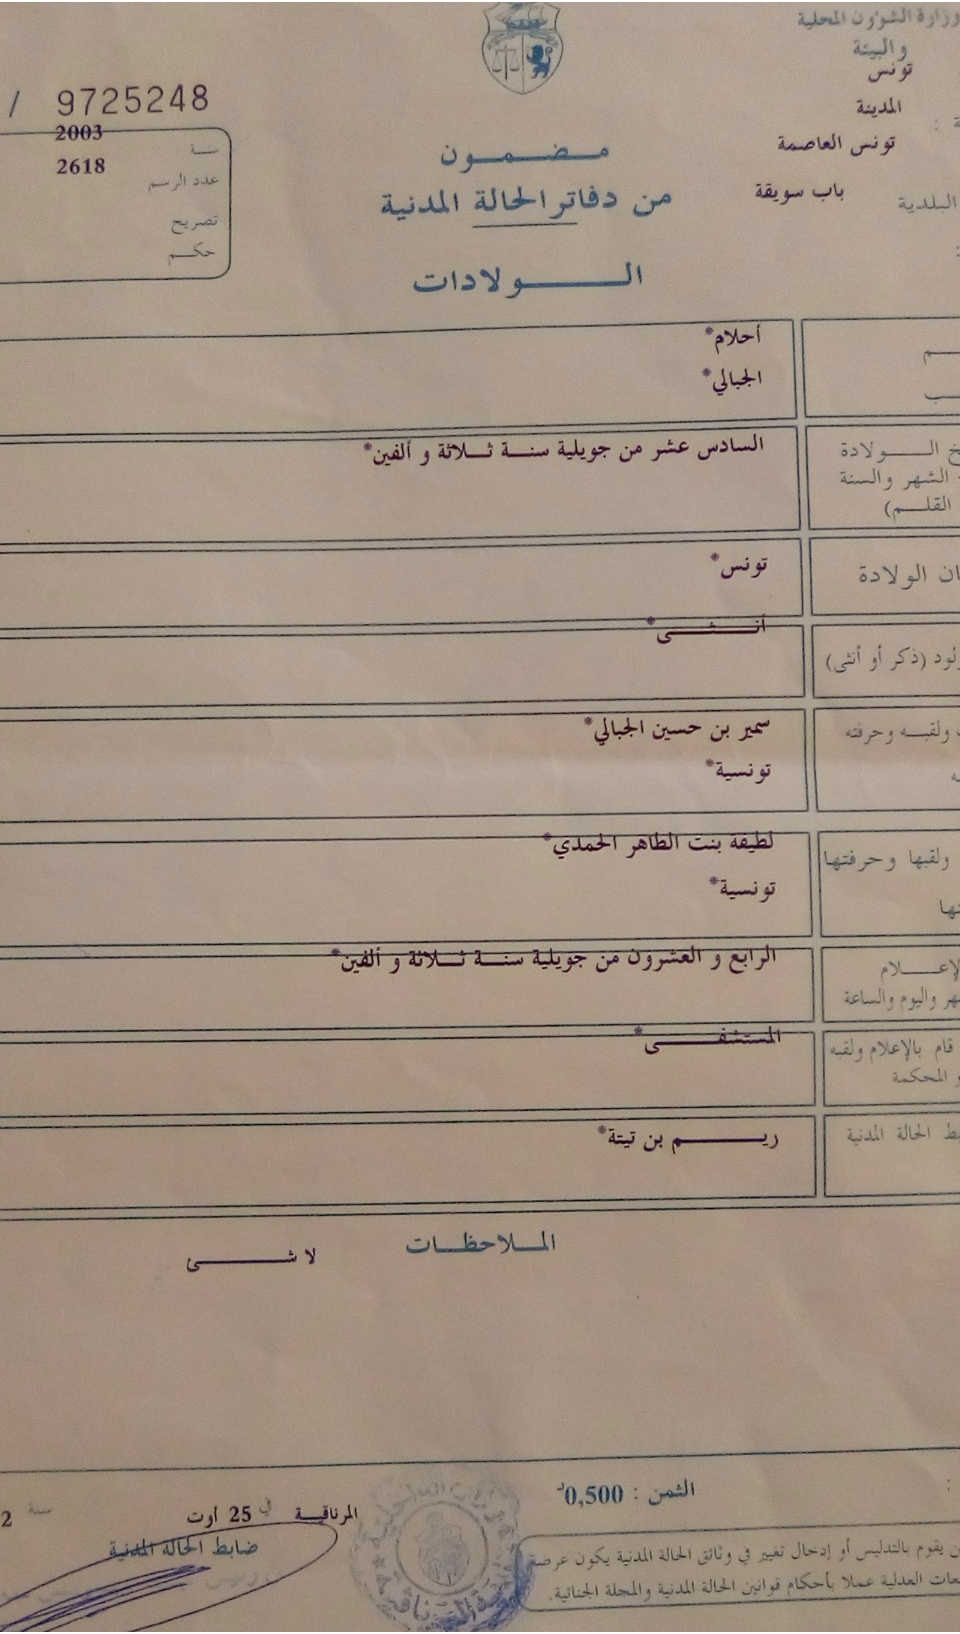 وزارة الشؤون المحلية
والبيئة
تونس
المدينة
تونس العاصمة
البلدية
باب سويقة
/ 9725248
2003
سنة
2618
عدد الرسم
تصريح
حكم
مضمون
من دفاتر الحالة المدنية
الولادات
أحلام*
الجبالي*
الولادة
السادس عشر من جويلية سنة ثلاثة و ألفين*
الشهر والسنة
القلم)
الولادة
تونس*
أنثى*
(ذكر أو أنثى)
ولقبه وحرفته
سمير بن حسين الجبالي*
تونسية*
ولقبها وحرفتها
لطيفة بنت الطاهر الحمدي*
تونسية*
الرابع و العشرون من جويلية سنة ثلاثة و ألفين*
واليوم والساعة
المستشفى*
قام بالإعلام ولقبه
المحكمة
الحالة المدنية
ريم بن تيتة*
الملاحظات
لا شئ
الثمن : 0,500د
المرناقية في 25 أوت سنة 2
ضابط الحالة المدنية
يقوم بالتدليس أو إدخال تغيير في وثائق الحالة المدنية يكون عرضة
العدلية عملا بأحكام قوانين الحالة المدنية والمجلة الجنائية.